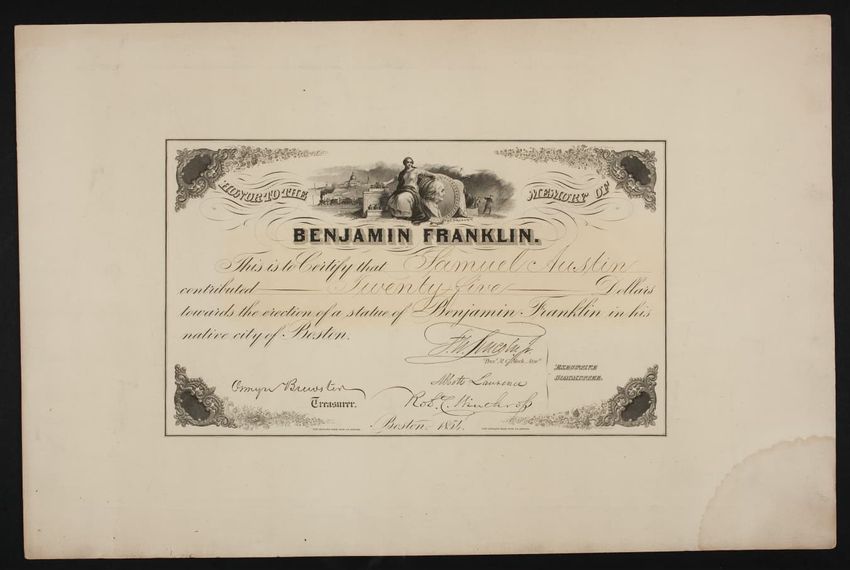 HONOR TO THE MEMORY OF
BENJAMIN FRANKLIN.
This is to Certify that Samuel Austin
contributed Twenty five Dollars
towards the erection of a statue of Benjamin Franklin in his
native city of Boston.
F. W. Lincoln Jr.
EXECUTIVE
COMMITTEE.
Osmyn Brewster
Treasurer.
Abbott Lawrence
Robt. C. Winthrop
Boston, 1857.